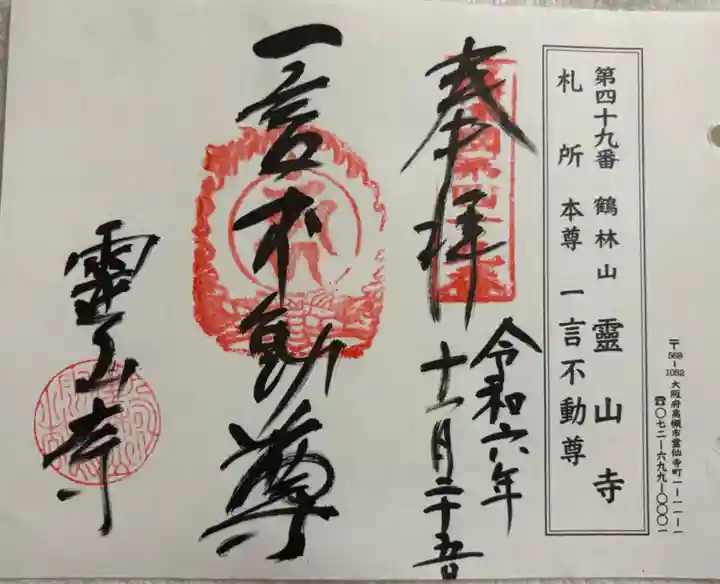 第四十九番 鶴林山 靈山寺
札所 本尊 一言不動尊
〒569-1052 大阪府高槻市霊仙寺町一-一一-一
☎〇七二-六九九-〇〇〇一
奉拝
令和六年
十一月二十五日
一言不動尊
靈山寺